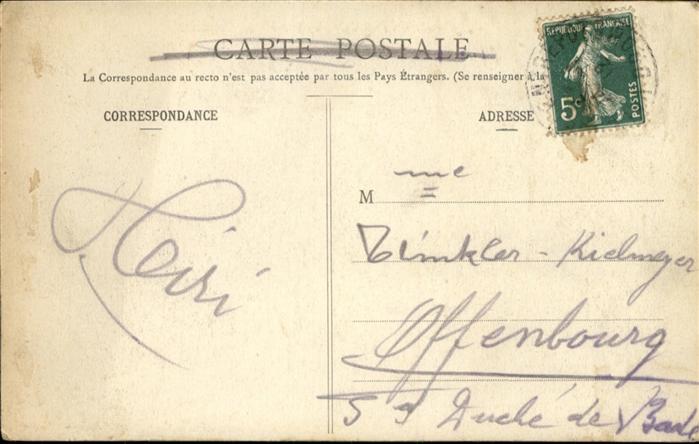 CARTE POSTALE
La Correspondance au recto n'est pas acceptée par tous les Pays Étrangers. (Se renseigner à la
CORRESPONDANCE
ADRESSE
REPUBLIQUE FRANÇAISE
5c
POSTES
M me
Winkler - Kielmeyer
Offenbourg
Duché de Bade
Heiri